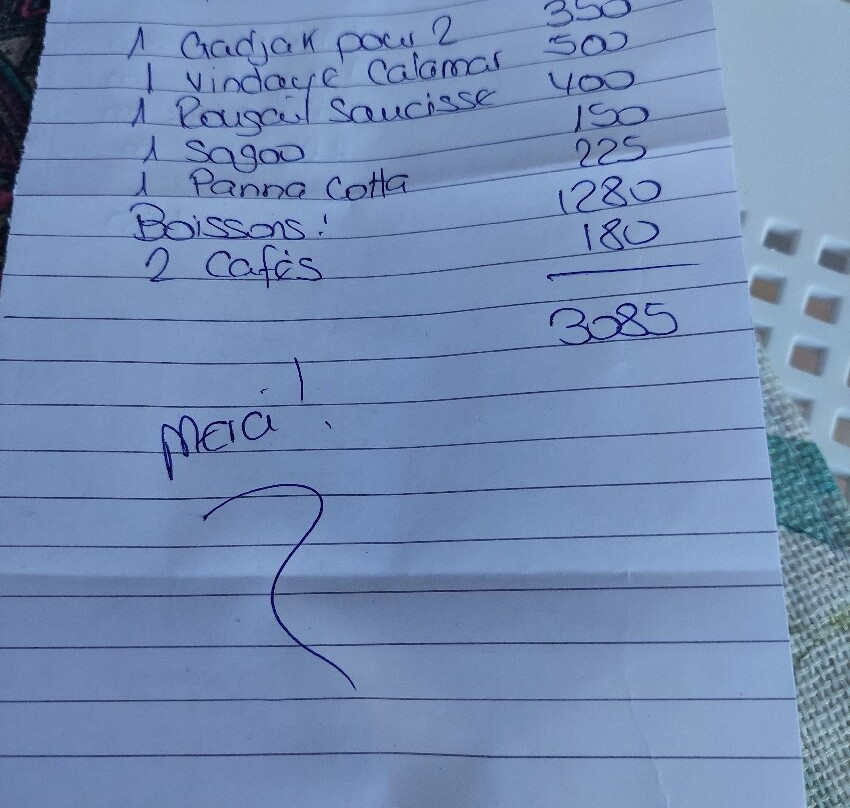 1 Gadjak pour 2 350
1 Vindaye Calamar 500
1 Rougail Saucisse 400
1 Sagoo 150
1 Panna Cotta 225
Boissons! 1280
2 Cafés 180
3085
Merci!